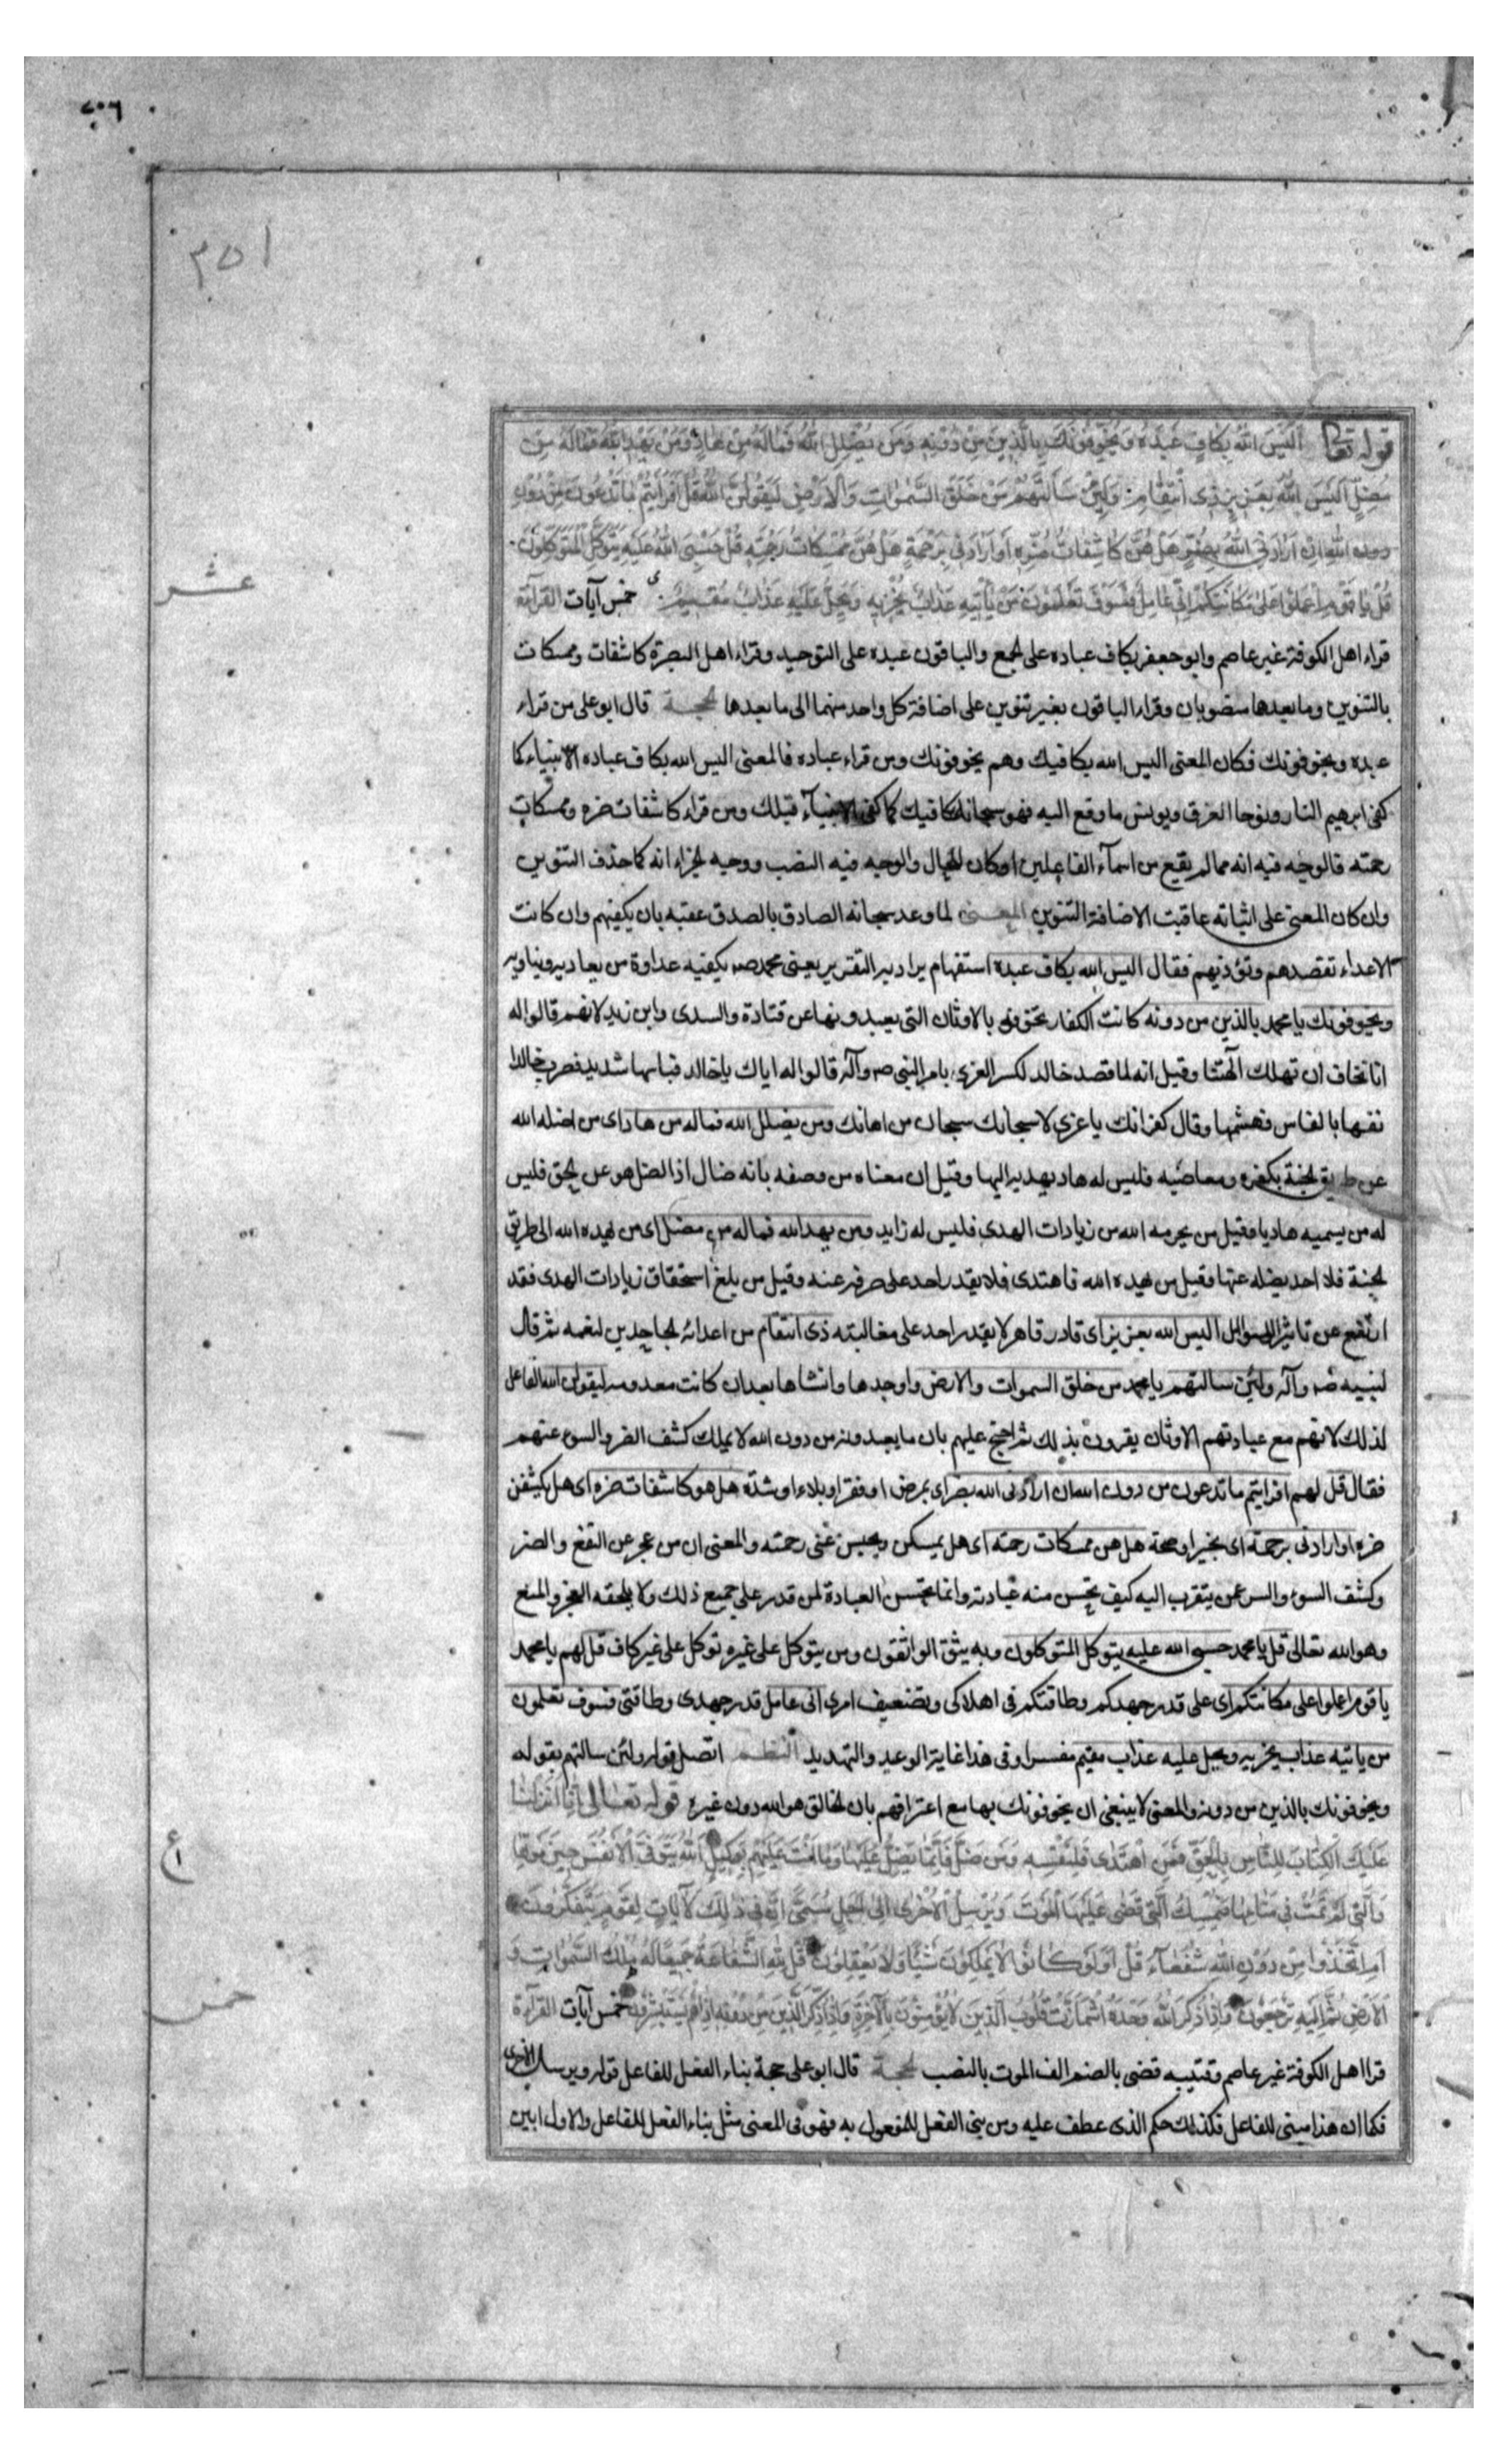 ٧٠٦
٣٥١
قوله تعالى أَلَيْسَ اللهُ بِكَافٍ عَبْدَهُ وَيُخَوِّفُونَكَ بِالَّذِينَ مِنْ دُونِهِ وَمَنْ يُضْلِلِ اللهُ فَمَا لَهُ مِنْ هَادٍ وَمَنْ يَهْدِ اللهُ فَمَا لَهُ مِنْ
مُضِلٍّ أَلَيْسَ اللهُ بِعَزِيزٍ ذِى انْتِقَامٍ وَلَئِنْ سَأَلْتَهُمْ مَنْ خَلَقَ السَّمٰوَاتِ وَالْأَرْضَ لَيَقُولُنَّ اللهُ قُلْ أَفَرَأَيْتُمْ مَا تَدْعُونَ مِنْ دُونِ
دون اللهِ إِنْ أَرَادَنِىَ اللهُ بِضُرٍّ هَلْ هُنَّ كَاشِفَاتُ ضُرِّهِ أَوْ أَرَادَنِى بِرَحْمَةٍ هَلْ هُنَّ مُمْسِكَاتُ رَحْمَتِهِ قُلْ حَسْبِىَ اللهُ عَلَيْهِ يَتَوَكَّلُ الْمُتَوَكِّلُونَ
قُلْ يَا قَوْمِ اعْمَلُوا عَلَى مَكَانَتِكُمْ إِنِّى عَامِلٌ فَسَوْفَ تَعْلَمُونَ مَنْ يَأْتِيهِ عَذَابٌ يُخْزِيهِ وَيَحِلُّ عَلَيْهِ عَذَابٌ مُقِيمٌ خمس آيات القراءة
عشر
قراء اهل الكوفة غير عاصم وابو جعفر بكاف عباده على الجمع والباقون عبده على التوحيد وقراء اهل البصرة كاشفات وممسكات
بالتنوين وما بعدها منصوبان وقراء الباقون بغير تنوين على اضافة كل واحد منهما الى ما بعدها الحجة قال ابو على من قراء
عبده ويخوفونك فكان المعنى اليس الله بكافيك وهم يخوفونك ومن قراء عباده فالمعنى اليس الله بكاف عباده الانبياء كما
كفى ابرهيم النار ونوحا الغرق ويونس ما وقع اليه فهو سبحانه كافيك كما كفى الانبياء قبلك ومن قراء كاشفات ضره وممسكات
رحمته فالوجه فيه انه مما لم يقع من اسماء الفاعلين او كان للحال والوجه فيه النصب ووجه الجراء انه كما حذف التنوين
وان كان المعنى على اثباته عاقبت الاضافة التنوين المعنى لما وعد سبحانه الصادق بالصدق عقبه بان يكفيهم وان كانت
الاعداء تقصدهم وتؤذيهم فقال اليس الله بكاف عبده استفهام يراد به التقرير يعنى محمد صه يكفيه عداوة من يعاديه ويناويه
ويخوفونك يا محمد بالذين من دونه كانت الكفار تخوفه بالاوثان التى يعبدونها عن قتادة والسدى وابن زيد لانهم قالوا له
انا نخاف ان تهلك آلهتنا وقيل انه لما قصد خالد لكسر العزى بامر النبى صه وآله قالوا له اياك يا خالد فبأسها شديد فضرب خالدا
نفها بالفاس فهشمها وقال كفرانك يا عزى لا سبحانك سبحان من اهانك ومن يضلل الله فماله من هاد اى من اضله الله
عن طريق الجنة بكفره ومعاصيه فليس له هاد يهديه اليها وقيل ان معناه من وصفه بانه ضال اذا ضل هو عن الحق فليس
له من يسميه هاديا وقيل من يحرمه الله من زيادات الهدى فليس له زايد ومن يهد الله فماله من مضل اى من يهده الله الى طريق
الجنة فلا احد يضله عنها وقيل من يهده الله فاهتدى فلا يقدر احد على صرفه عنه وقيل من بلغ استحقاق زيادات الهدى فقد
ارتفع عن تاثير اليس الله بعزيز اى قادر قاهر لا يقدر احد على مغالبته ذى انتقام من اعدائه الجاحدين لنعمه ثم قال
لنبيه صه وآله ولئن سالتهم يا محمد من خلق السموات والارض واوجدها وانشاها بعد ان كانت معدومة ليقولن الله الفاعل
لذلك لانهم مع عبادتهم الاوثان يقرون بذلك ثم احتج عليهم بان ما يعبدونه من دون الله لا يملك كشف الضر والسوء عنهم
فقال قل لهم افرايتم ما تدعون من دون الله ان ارادنى الله بضر اى بمرض او فقر او بلاء او شدة هل هو كاشفات ضره اى هل يكشفن
ضره او ارادنى برحمة اى بخير او صحة هل هن ممسكات رحمته اى هل يمسكن ويحبسن عنى رحمته والمعنى ان من عجز عن النفع والضر
وكشف السوء والسر عمن يتقرب اليه كيف تحسن منه عبادته وانما تحسن العبادة لمن قدر على جميع ذلك ولا يلحقه العجز والمنع
وهو الله تعالى قل يا محمد حسبى الله عليه يتوكل المتوكلون وبه يثق الواثقون ومن يتوكل على غيره توكل على غير كاف قل لهم يا محمد
يا قوم اعملوا على مكانتكم اى على قدر جهدكم وطاقتكم فى اهلاكى وتضعيف امرى انى عامل قدر جهدى وطاقتى فسوف تعلمون
من ياتيه عذاب يخزيه ويحل عليه عذاب مقيم مفسر وفى هذا غاية الوعيد والتهديد النظم اتصل قوله ولئن سالتهم بقوله
ويخوفونك بالذين من دونه والمعنى لا ينبغى ان يخوفونك بها مع اعترافهم بان الخالق هو الله دون غيره قوله تعالى إِنَّا أَنْزَلْنَا
عَلَيْكَ الْكِتَابَ لِلنَّاسِ بِالْحَقِّ فَمَنِ اهْتَدٰى فَلِنَفْسِهِ وَمَنْ ضَلَّ فَإِنَّمَا يَضِلُّ عَلَيْهَا وَمَا أَنْتَ عَلَيْهِمْ بِوَكِيلٍ اللهُ يَتَوَفَّى الْأَنْفُسَ حِينَ مَوْتِهَا
ع
وَالَّتِى لَمْ تَمُتْ فِى مَنَامِهَا فَيُمْسِكُ الَّتِى قَضٰى عَلَيْهَا الْمَوْتَ وَيُرْسِلُ الْأُخْرٰى إِلٰى أَجَلٍ مُسَمًّى إِنَّ فِى ذٰلِكَ لَآيَاتٍ لِقَوْمٍ يَتَفَكَّرُونَ
أَمِ اتَّخَذُوا مِنْ دُونِ اللهِ شُفَعَاءَ قُلْ أَوَلَوْ كَانُوا لَا يَمْلِكُونَ شَيْئًا وَلَا يَعْقِلُونَ قُلْ لِلهِ الشَّفَاعَةُ جَمِيعًا لَهُ مُلْكُ السَّمٰوَاتِ وَ
الْأَرْضِ ثُمَّ إِلَيْهِ تُرْجَعُونَ وَإِذَا ذُكِرَ اللهُ وَحْدَهُ اشْمَأَزَّتْ قُلُوبُ الَّذِينَ لَا يُؤْمِنُونَ بِالْآخِرَةِ وَإِذَا ذُكِرَ الَّذِينَ مِنْ دُونِهِ إِذَا هُمْ يَسْتَبْشِرُونَ خمس آيات القراءة
خمس
قرا اهل الكوفة غير عاصم وقتيبه قضى بالضم الف الموت بالنصب الحجة قال ابو على حجة بناء الفعل للفاعل قوله ويرسل الاخرى
فكما ان هذا مبنى للفاعل فكذلك حكم الذى عطف عليه ومن بنى الفعل للمفعول به فهو فى المعنى مثل بناء الفعل للفاعل والاول ابين